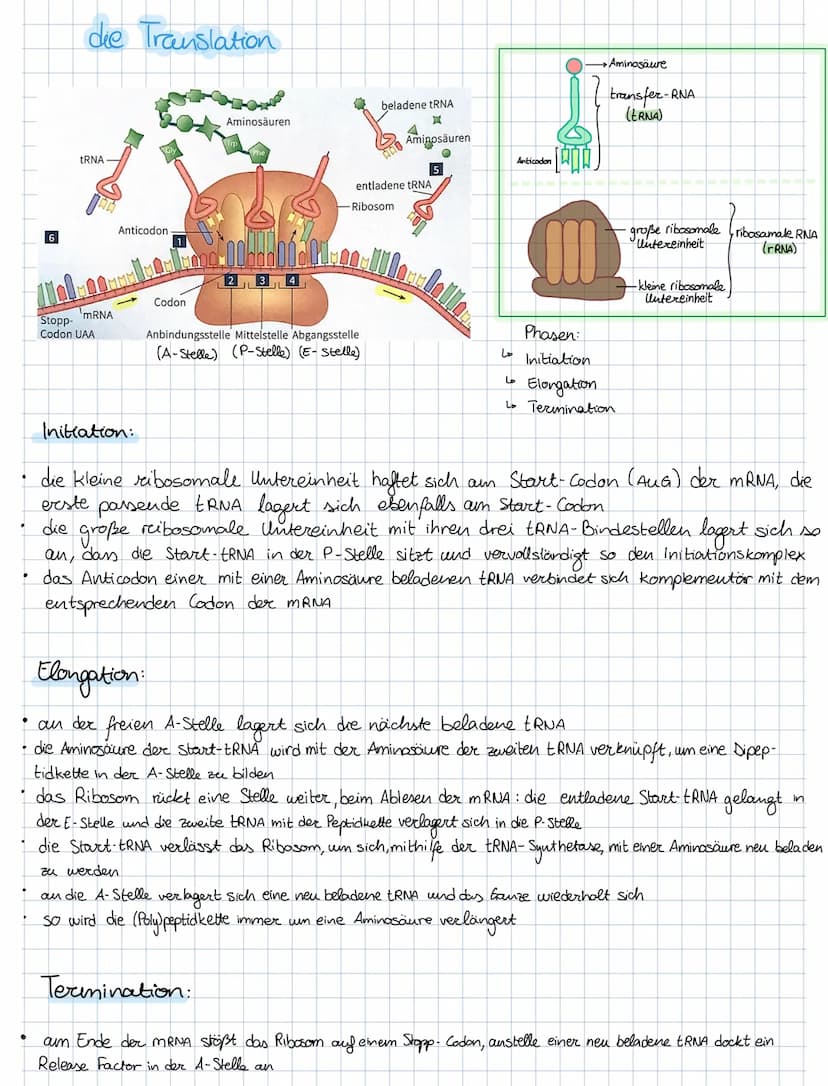 die Translation
Aminosäuren
beladene tRNA
Aminosäuren
tRNA
Gly
Trp
Phe
5
entladene tRNA
Ribosom
Anticodon
6
1
2 3 4
Codon
mRNA
Stopp-
Codon UAA
Anbindungsstelle Mittelstelle Abgangsstelle
(A-Stelle) (P-Stelle) (E-Stelle)
Aminosäure
transfer-RNA
(tRNA)
Anticodon
große ribosomale
Untereinheit
ribosomale RNA
(rRNA)
kleine ribosomale
Untereinheit
Phasen:
↳ Initiation
↳ Elongation
↳ Termination
Initiation:
• die kleine ribosomale Untereinheit haftet sich am Start-Codon (AUG) der mRNA, die
erste passende tRNA lagert sich ebenfalls am Start-Codon
• die große ribosomale Untereinheit mit ihren drei tRNA-Bindestellen lagert sich so
an, dass die Start-tRNA in der P-Stelle sitzt und vervollständigt so den Initiationskomplex
• das Anticodon einer mit einer Aminosäure beladenen tRNA verbindet sich komplementär mit dem
entsprechenden Codon der mRNA
Elongation:
• an der freien A-Stelle lagert sich die nächste beladene tRNA
• die Aminosäure der Start-tRNA wird mit der Aminosäure der zweiten tRNA verknüpft, um eine Dipep-
tidkette in der A-Stelle zu bilden
• das Ribosom rückt eine Stelle weiter, beim Ablesen der mRNA: die entladene Start-tRNA gelangt in
der E-Stelle und die zweite tRNA mit der Peptidkette verlagert sich in die P-Stelle
• die Start-tRNA verlässt das Ribosom, um sich, mithilfe der tRNA-Synthetase, mit einer Aminosäure neu beladen
zu werden
• an die A-Stelle verlagert sich eine neu beladene tRNA und das Ganze wiederholt sich
• so wird die (Poly)peptidkette immer um eine Aminosäure verlängert
Termination:
• am Ende der mRNA stößt das Ribosom auf einem Stopp-Codon, anstelle einer neu beladene tRNA dockt ein
Release Factor in der A-Stelle an